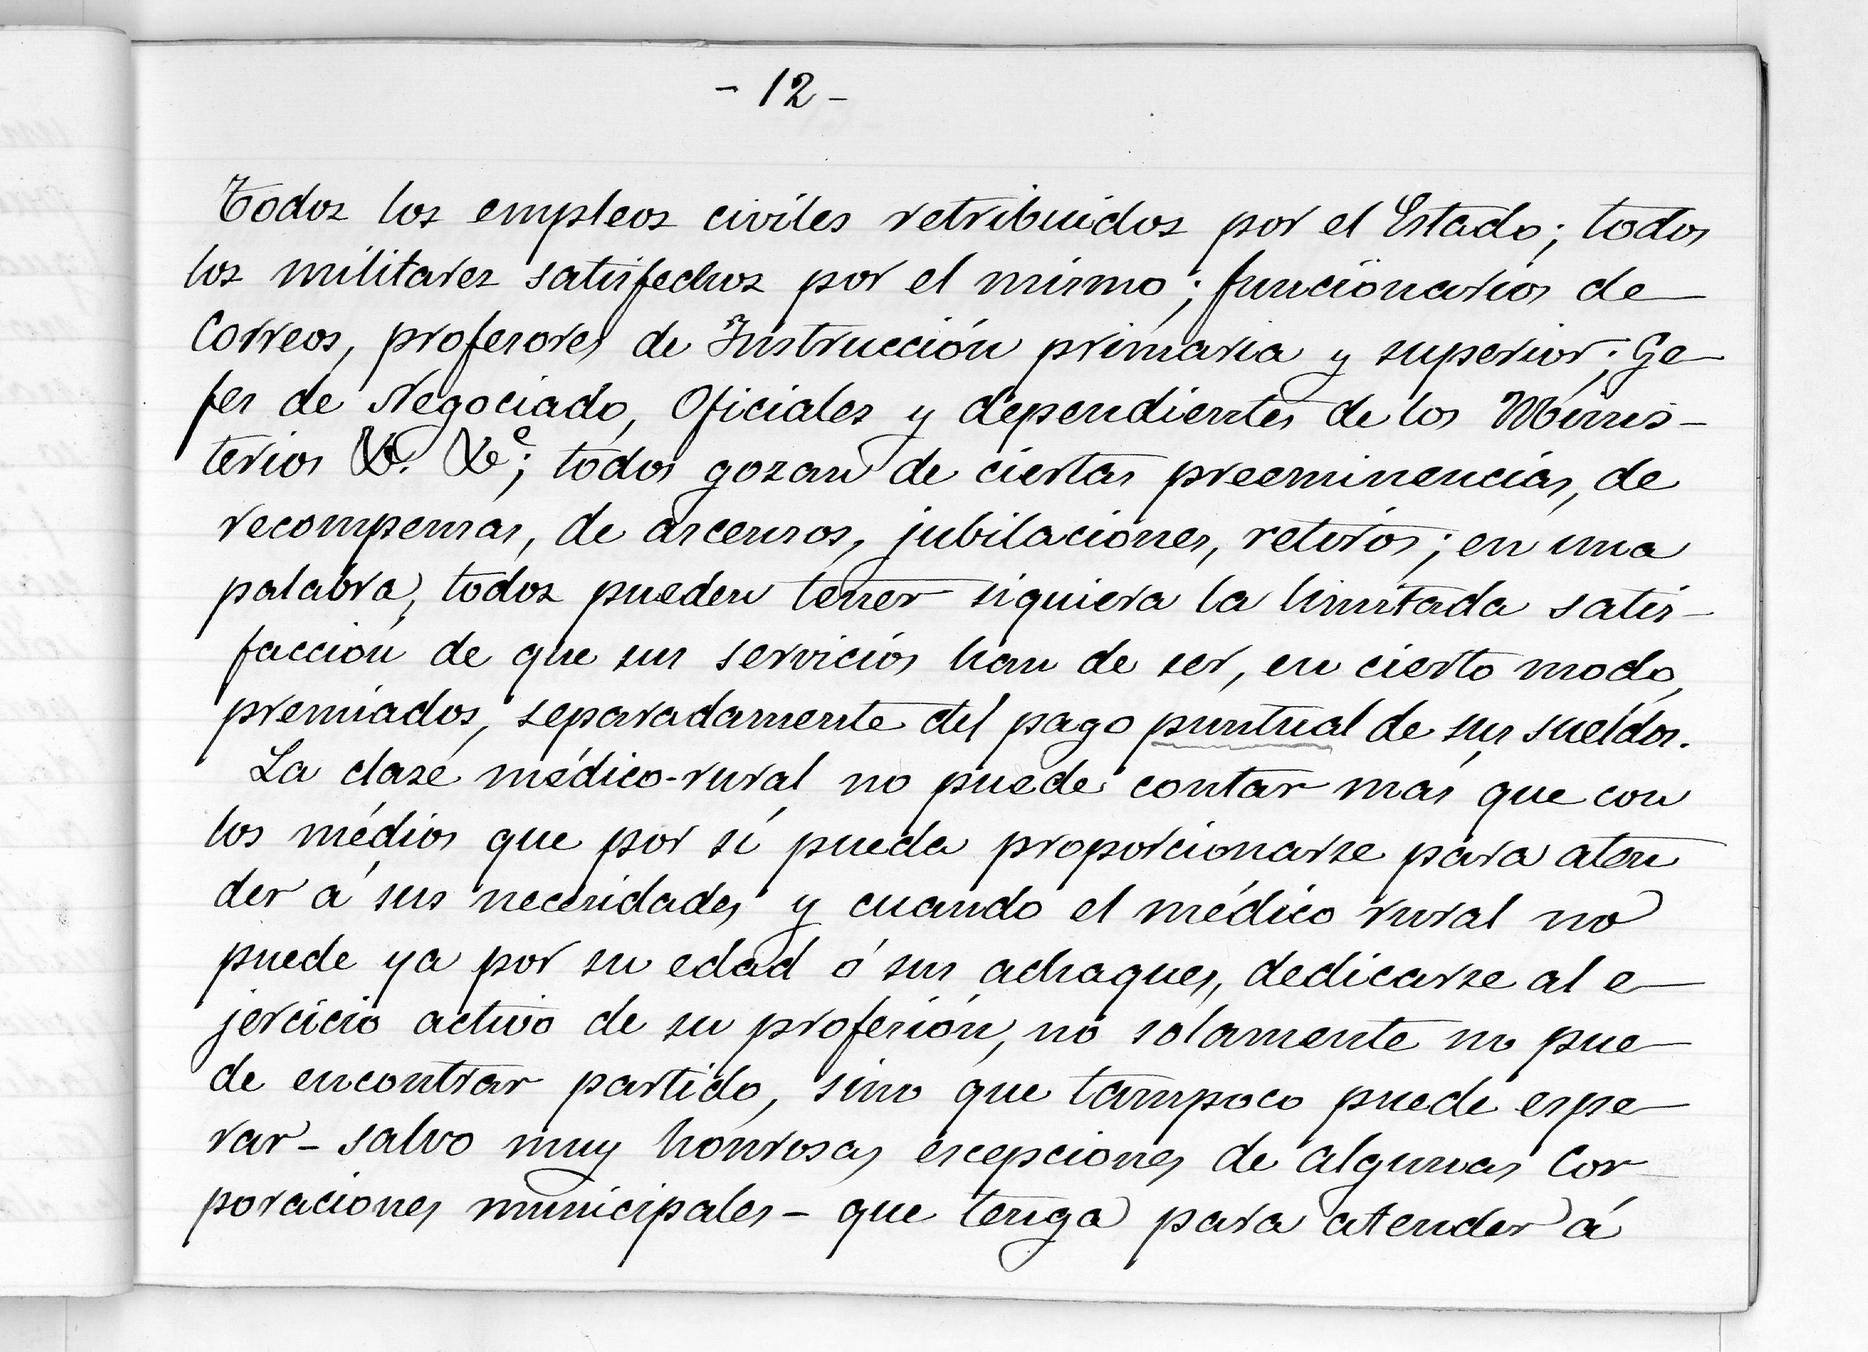 - 12 -
Todos los empleos civiles retribuidos por el Estado; todos
los militares satisfechos por el mismo; funcionarios de
Correos, profesores de Instrucción primaria y superior; Ge-
fes de Negociado, Oficiales y dependientes de los Minis-
terios &. &ª; todos gozan de ciertas preeminencias, de
recompensas, de ascensos, jubilaciones, retiros; en una
palabra, todos pueden tener siquiera la limitada satis-
facción de que sus servicios han de ser, en cierto modo,
premiados, separadamente del pago puntual de sus sueldos.
La clase médico-rural no puede contar más que con
los médios que por sí pueda proporcionarse para aten
der á sus necesidades y cuando el médico rural no
puede ya por su edad ó sus achaques, dedicarse al e-
jercicio activo de su profesión, no solamente no pue-
de encontrar partido, sino que tampoco puede espe-
rar - salvo muy honrosas escepciones de algunas Cor
poraciones municipales - que tenga para atender á